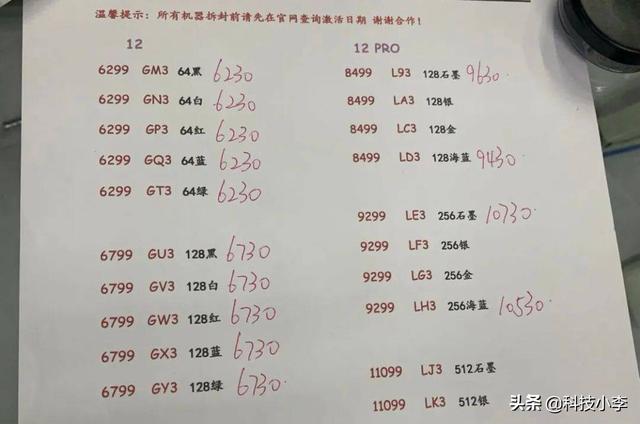 温馨提示：所有机器拆封前请先在官网查询激活日期 谢谢合作！
12
6299 GM3 64黑 6230
6299 GN3 64白 6230
6299 GP3 64红 6230
6299 GQ3 64蓝 6230
6299 GT3 64绿 6230
6799 GU3 128黑 6730
6799 GV3 128白 6730
6799 GW3 128红 6730
6799 GX3 128蓝 6730
6799 GY3 128绿 6730
12 PRO
8499 L93 128石墨 9630
8499 LA3 128银
8499 LC3 128金
8499 LD3 128海蓝 9430
9299 LE3 256石墨 10730
9299 LF3 256银
9299 LG3 256金
9299 LH3 256海蓝 10530
11099 LJ3 512石墨
11099 LK3 512银
头条 @科技小李